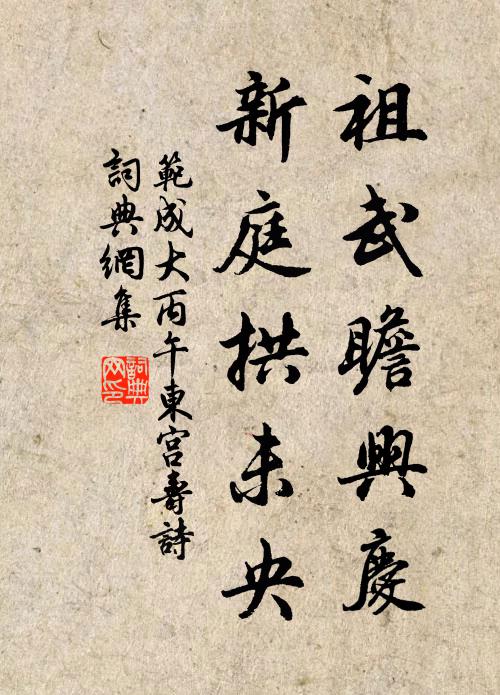 祖武瞻興慶
新庭拱未央
範成大丙午東宮壽詩
詞典網集
詞典
网印